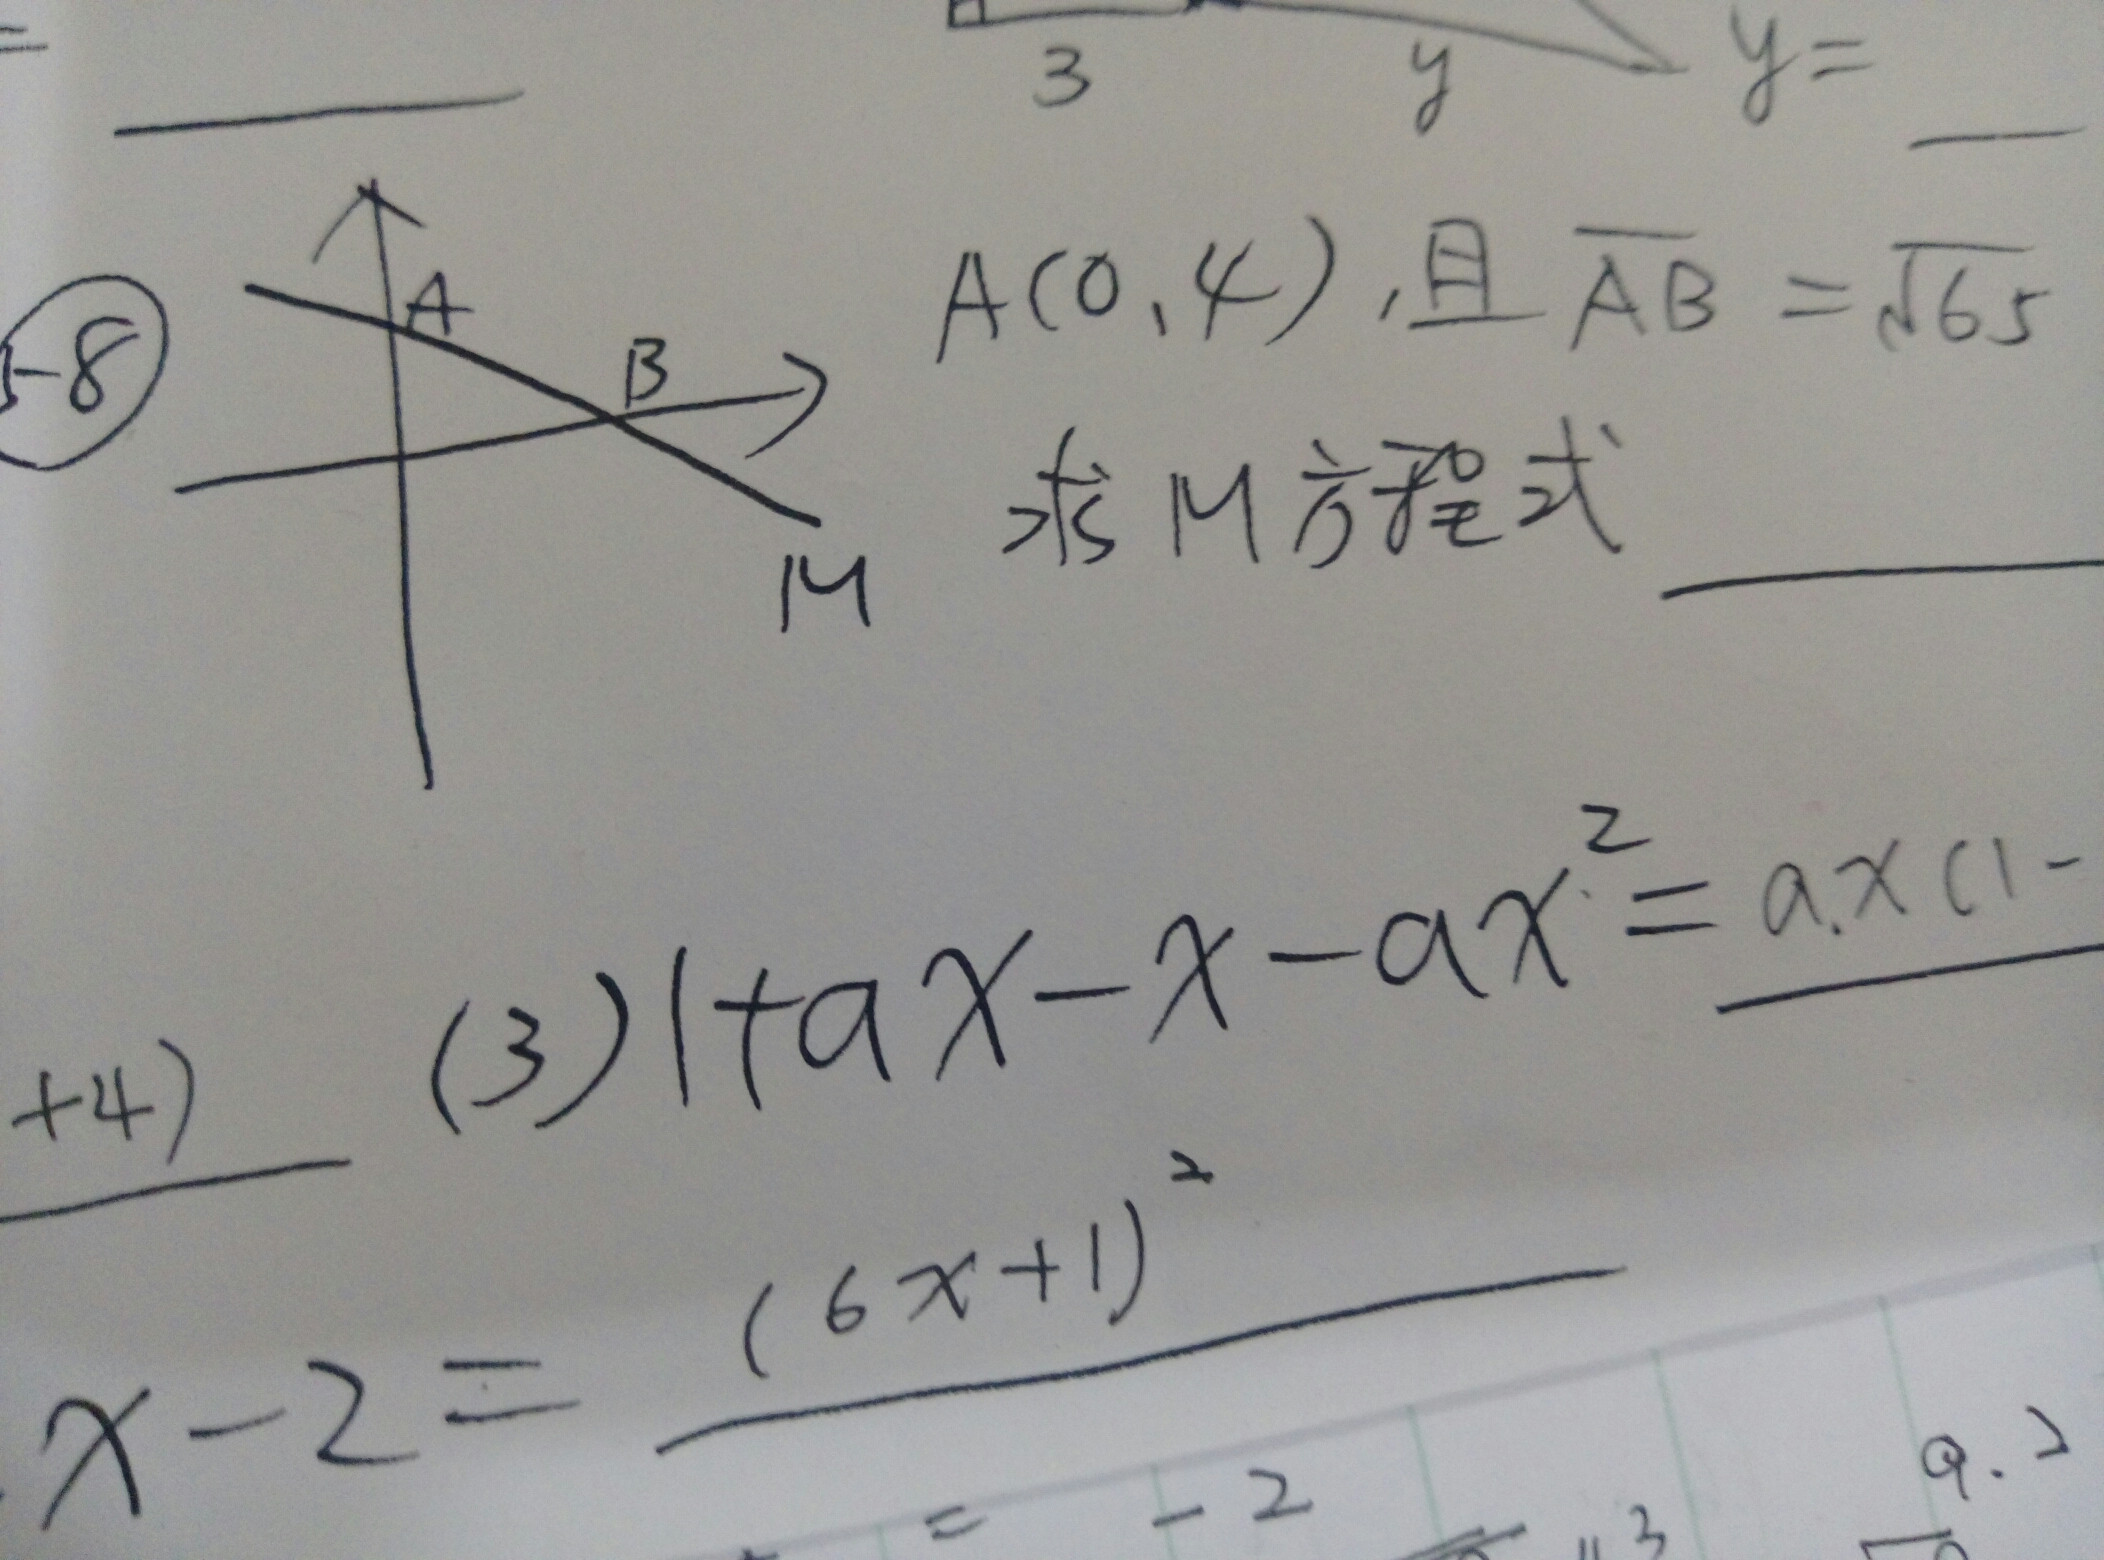 =
3 y y=
A(0,4),且 AB = √65
-8
A
B
求M方程式
M
(3) 1+ax-x-ax²= a.x(1-
+4)
(6x+1)²
x-2=
= -2
3
9.2